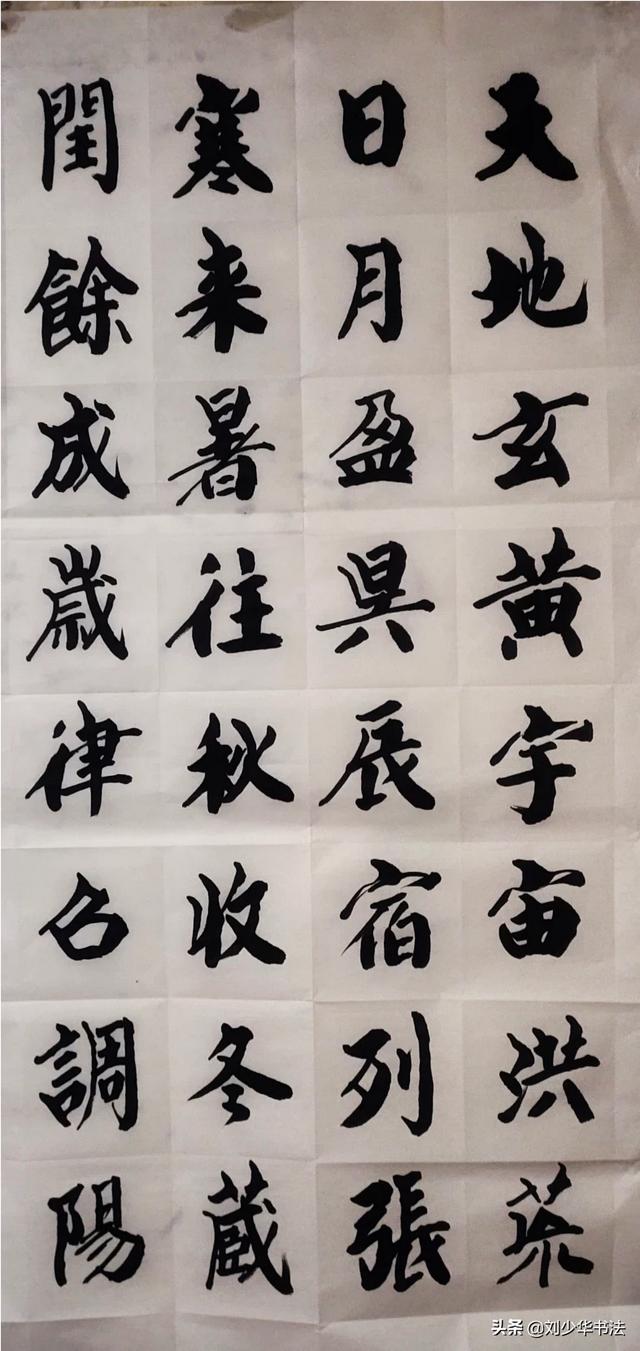 天地玄黄宇宙洪荒
日月盈昃辰宿列張
寒来暑往秋收冬蔵
閏餘成歲律吕調陽
头条 @刘少华书法